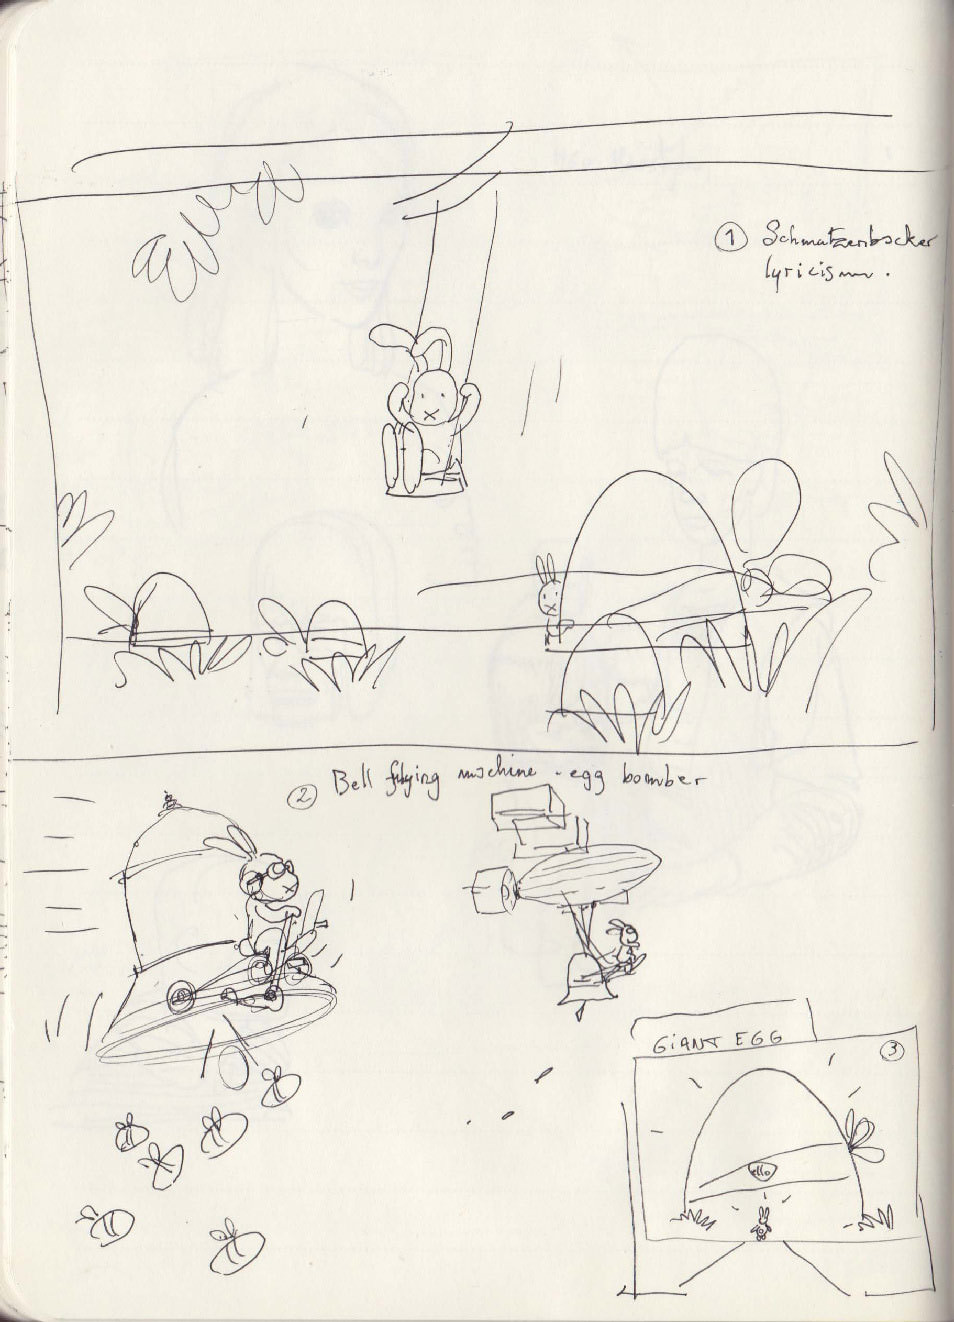 1 Schmatzenbocker
lyricism.
2 Bell flying machine - egg bomber
GIANT EGG
3
ello